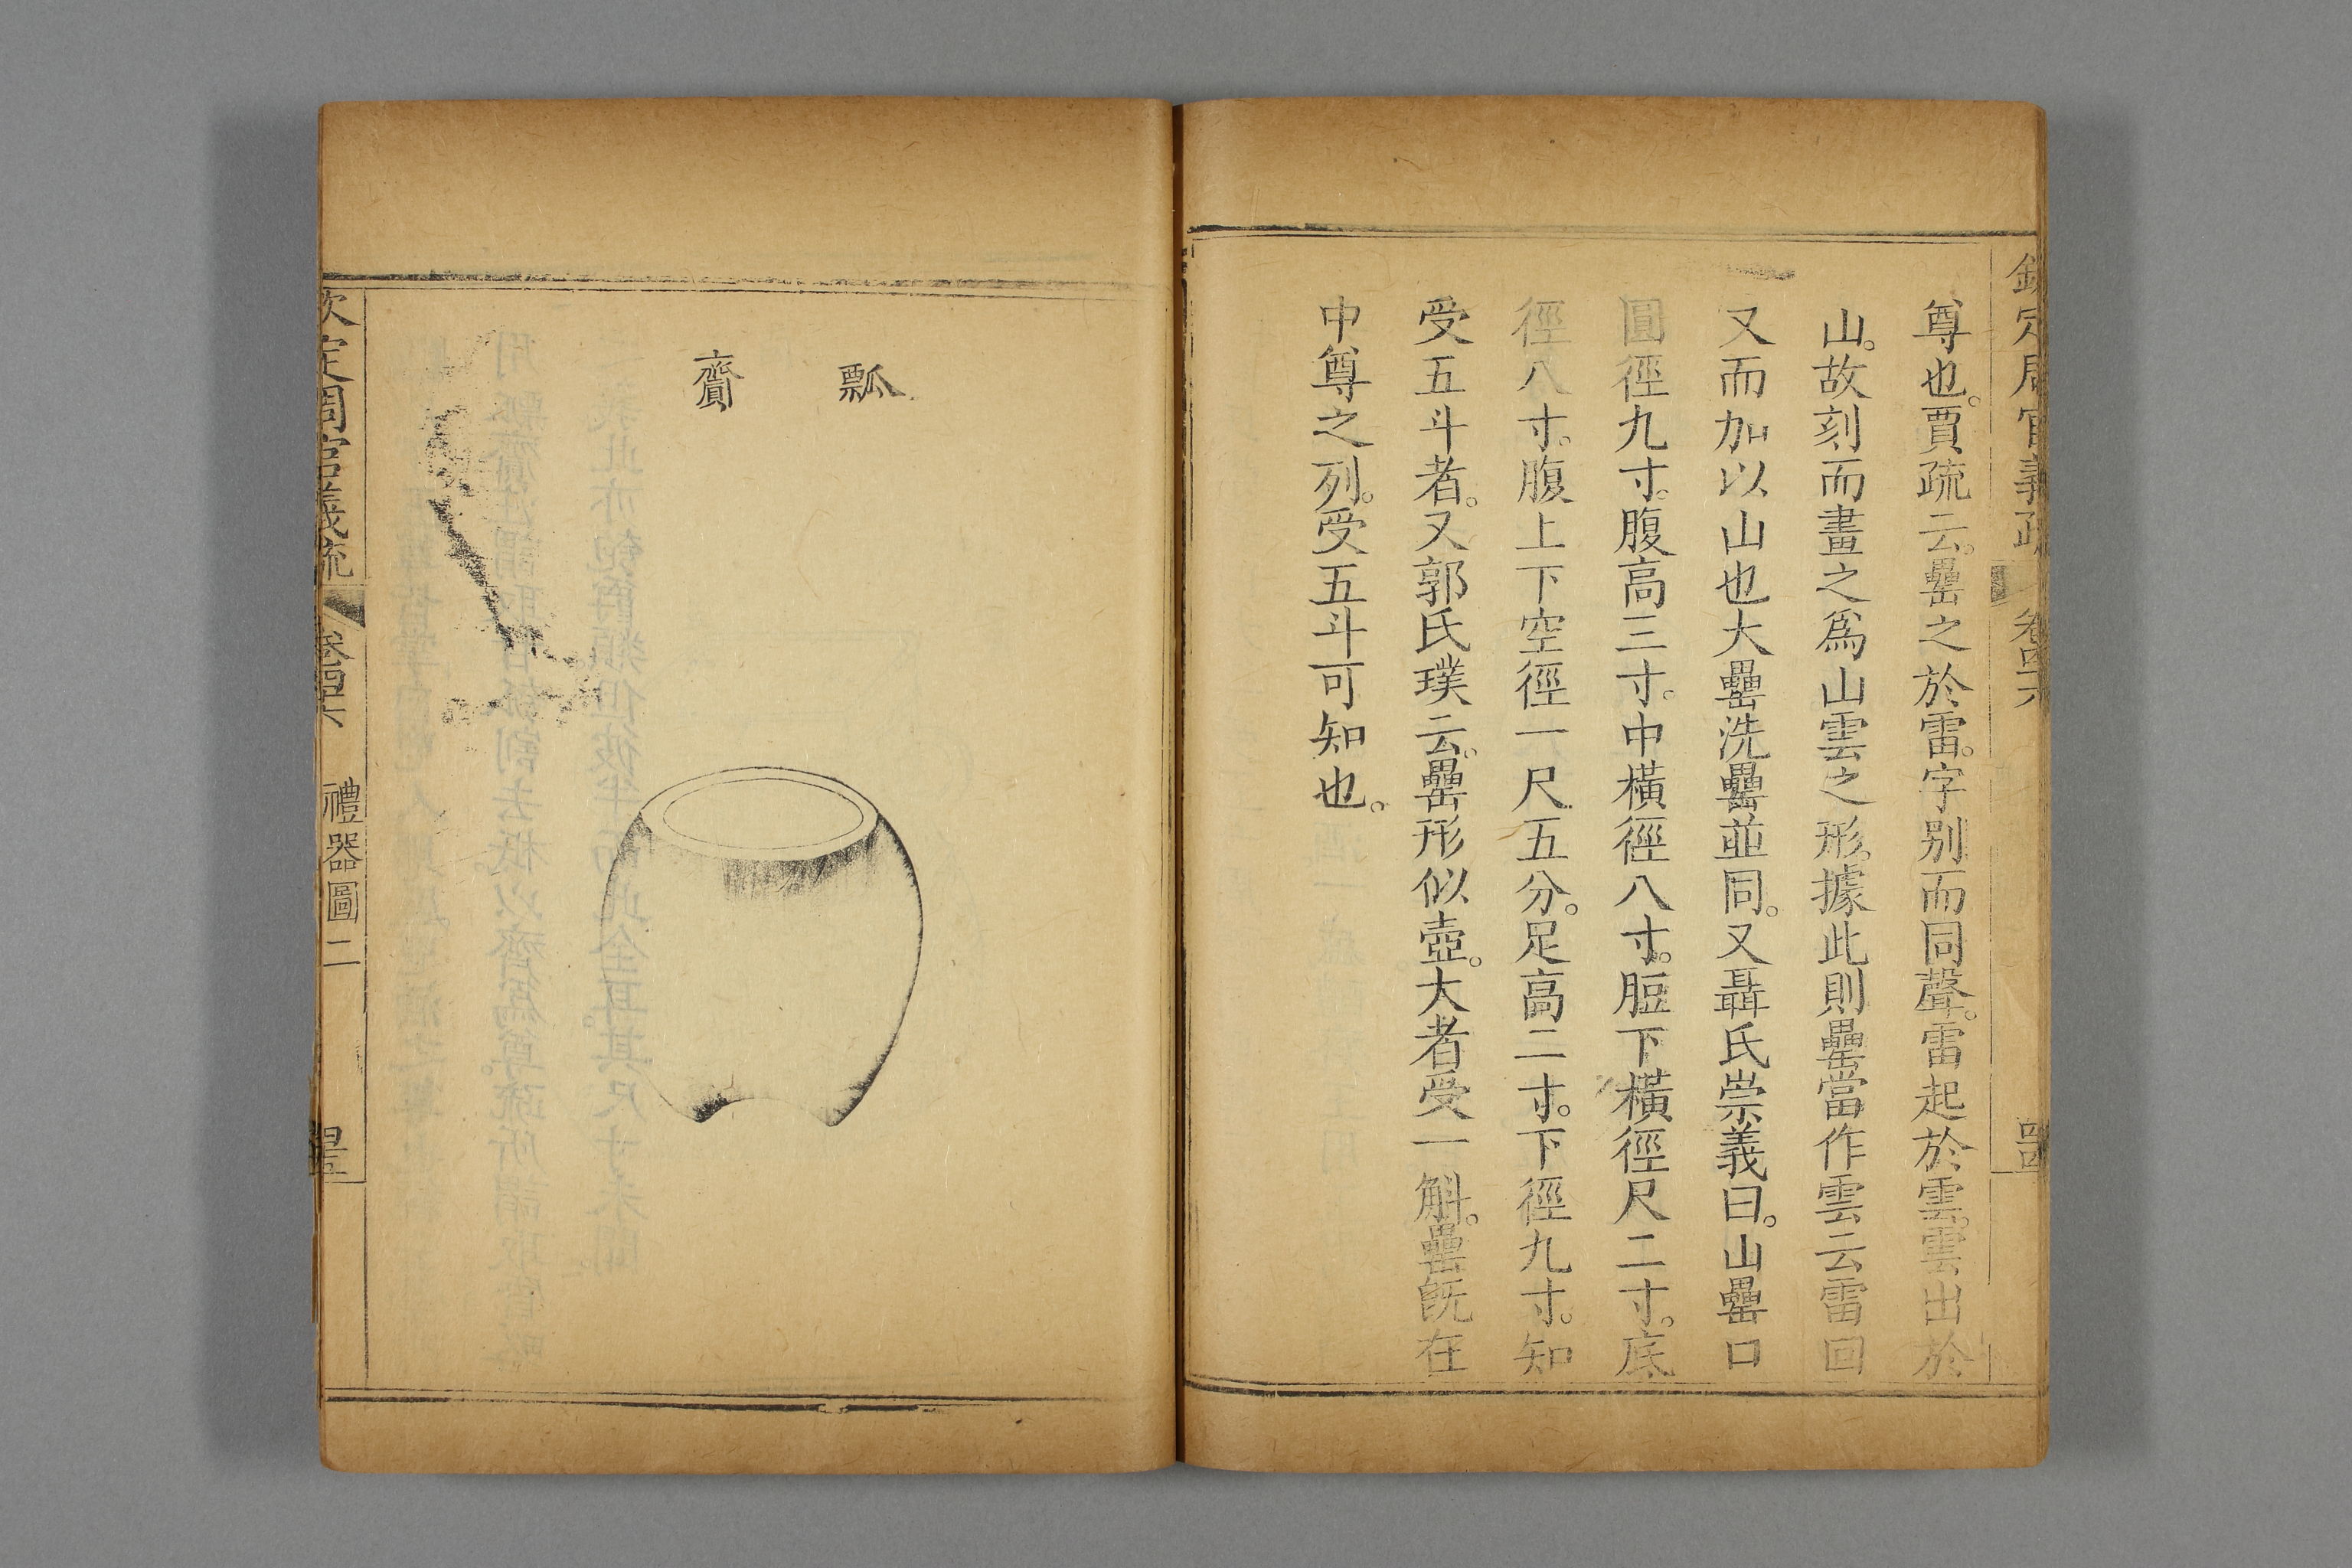 尊也。賈疏云。罍之於雷。字别而同聲。雷起於雲。雲出於
山。故刻而畫之爲山雲之形。據此則罍當作雲云雷回
又而加以山也大罍洗罍並同。又聶氏崇義曰。山罍口
圓徑九寸。腹高三寸。中橫徑八寸。脰下橫徑尺二寸。底
徑八寸。腹上下空徑一尺五分。足高二寸。下徑九寸。知
受五斗者。又郭氏璞云。罍形似壺。大者受一斛。罍既在
中尊之列。受五斗可知也。
瓢齎
欽定周官義疏 卷四十六 禮器圖二